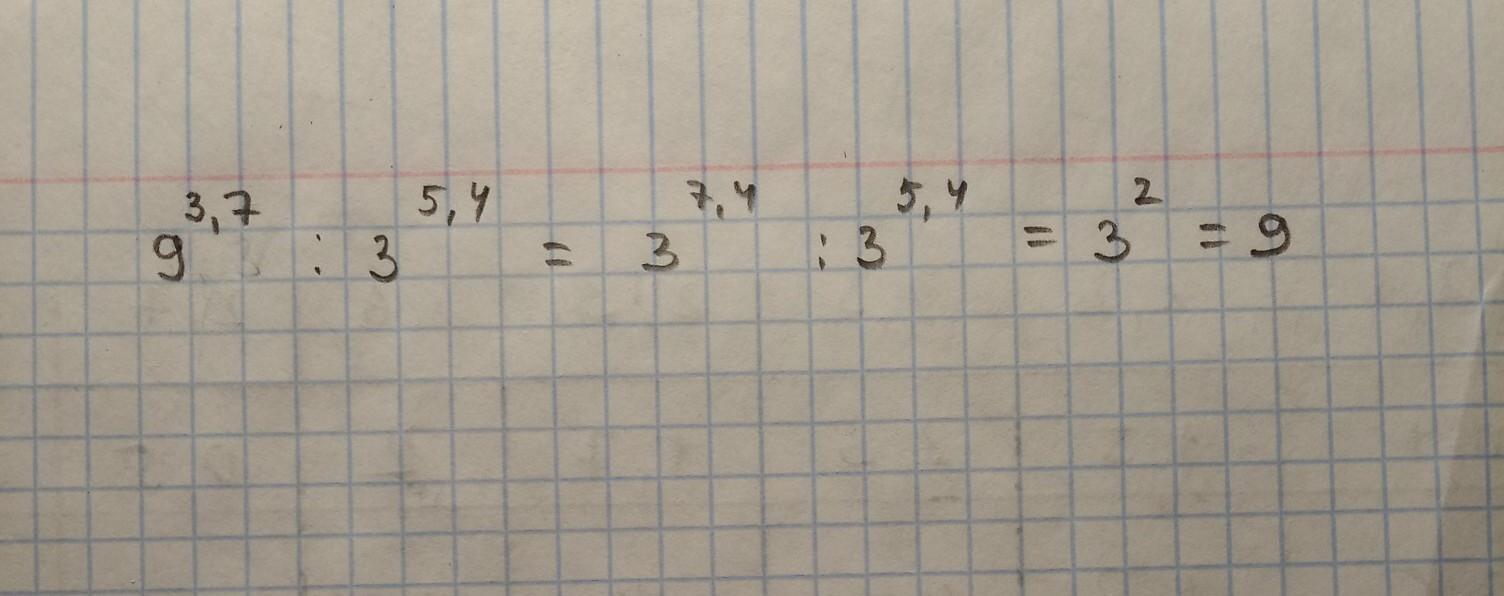 9^3,7 : 3^5,4 = 3^7,4 : 3^5,4 = 3^2 = 9